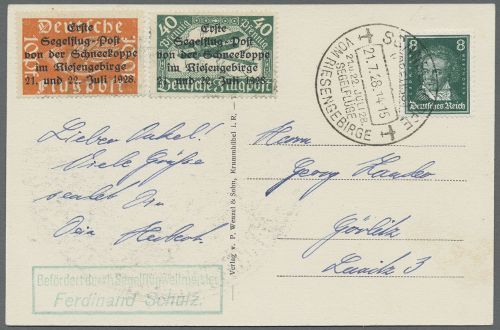 Deutsche
Erste
Segelflug-Post
von der Schneekoppe
im Riesengebirge
21. und 22. Juli 1928
Flugpost
40 40
Erste
Segelflug-Post
von der Schneekoppe
im Riesengebirge
21. und 22. Juli 1928
Deutsche Flugpost
21.7.28.4-15
21.22.JULI 28
SEGELFLÜGE
VOM RIESENGEBIRGE
8 8
Deutsches Reich
Lieber Onkel!
Viele Grüße
sendet Dir
Dein Herbert.
Verlag v. P. Wenzel & Sohn, Krummhübel i. R.
Herrn
Georg
Görlitz
3
Befördert durch Segelflugweltmeister
Ferdinand Schulz.